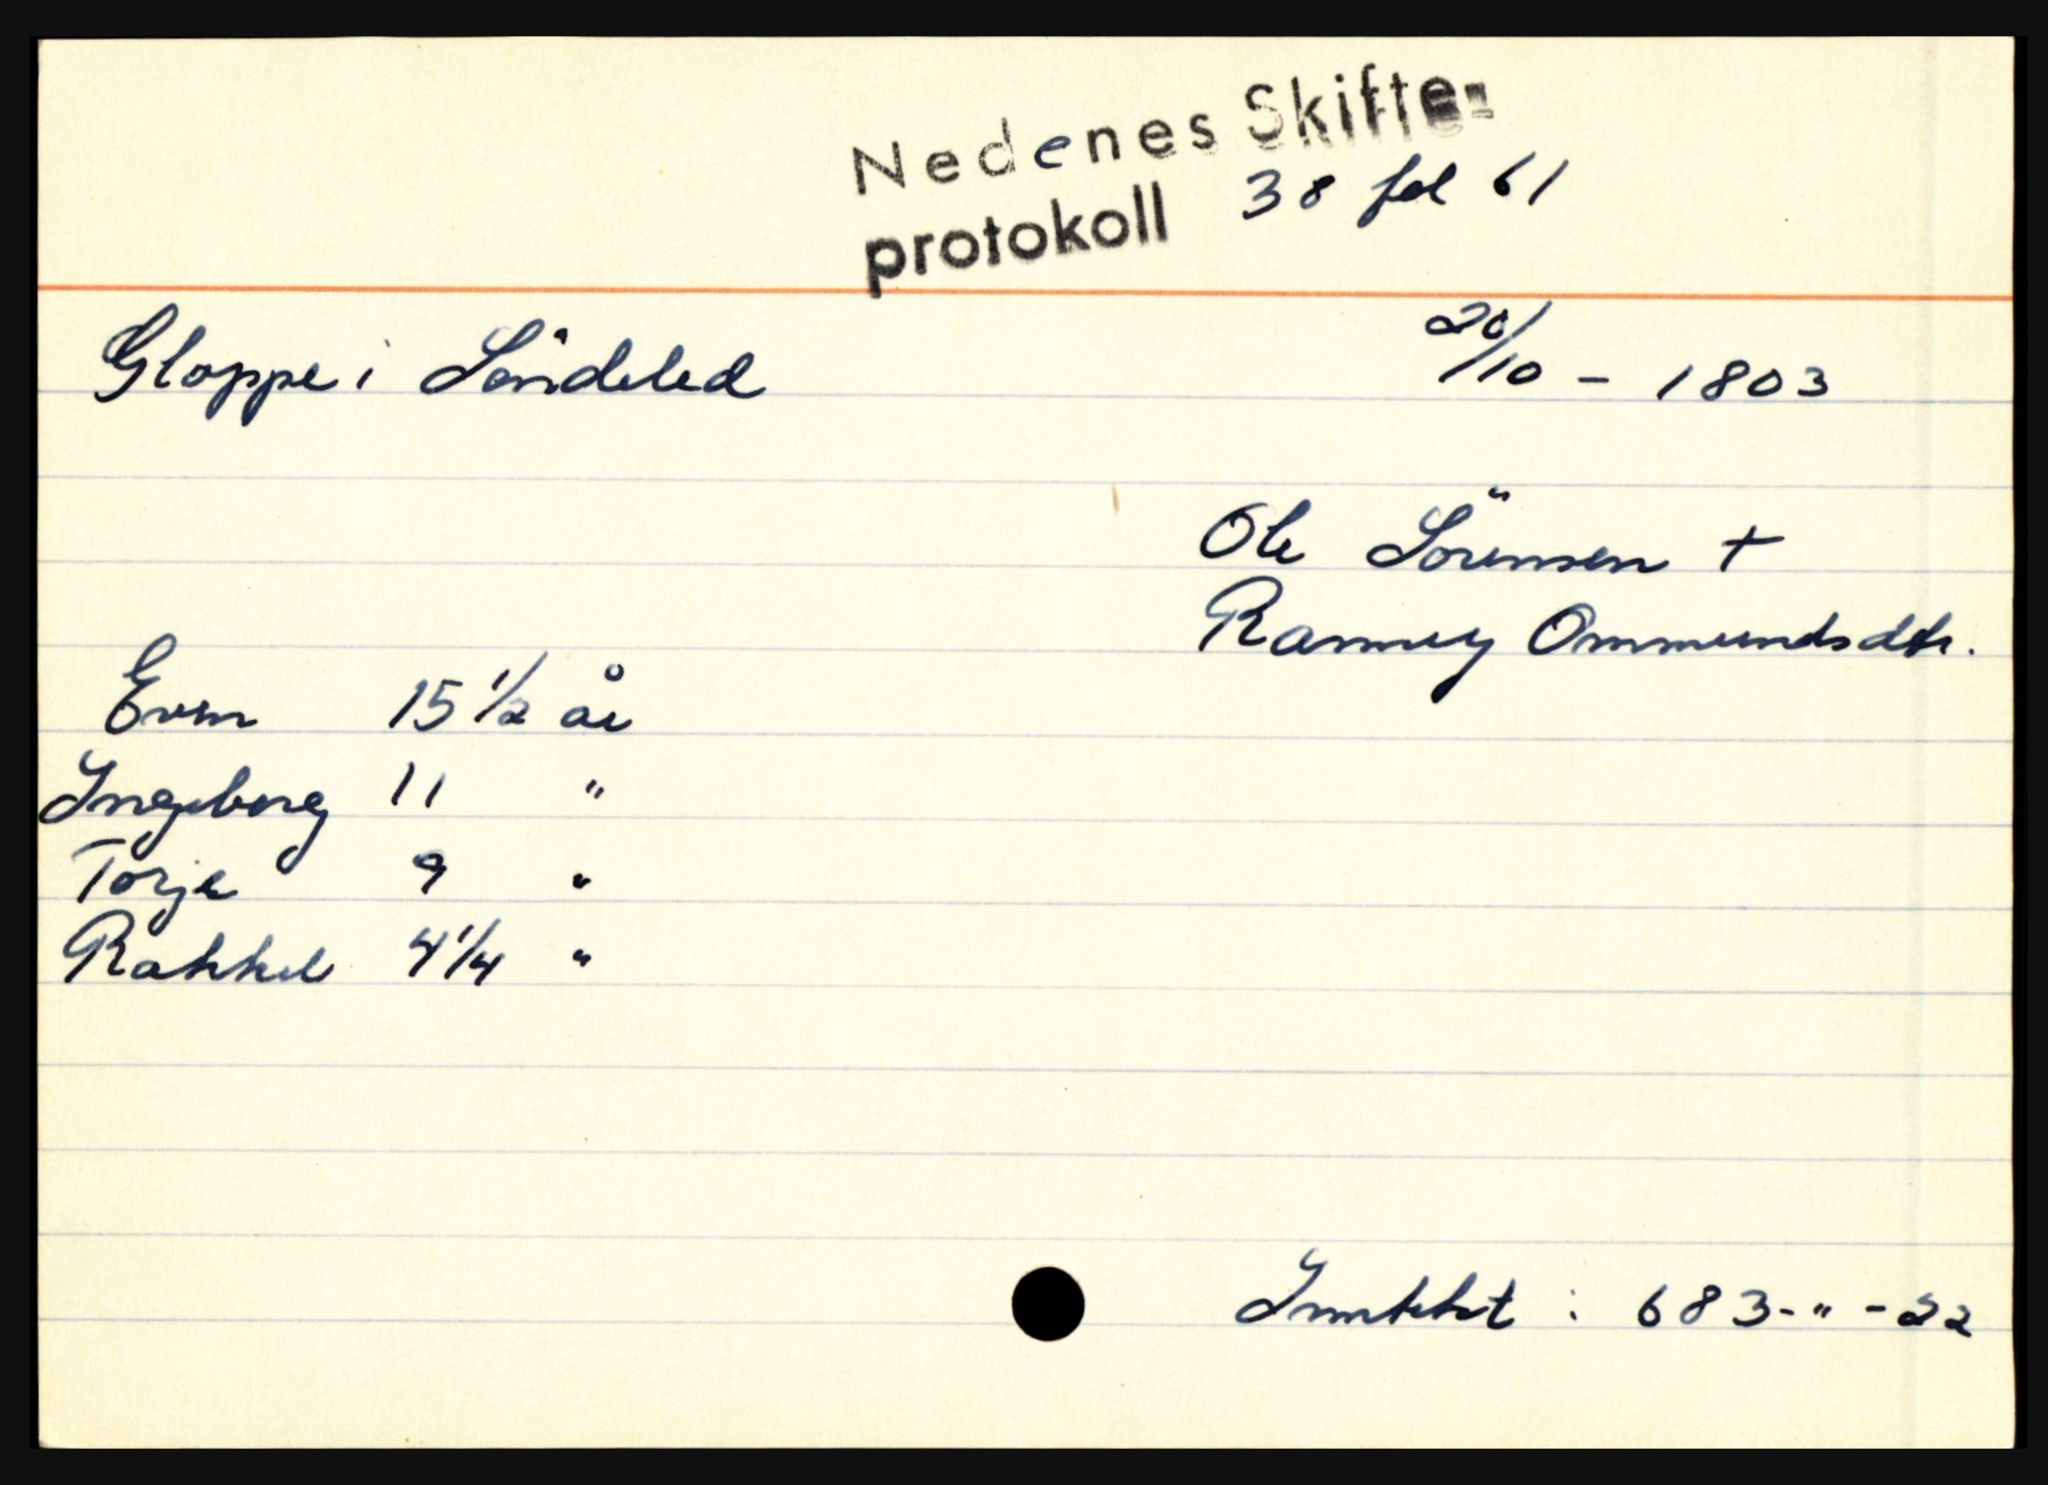 Nedenes Skifte-
protokoll 38 fol 61
Gloppe i Söndeled 20/10 - 1803
Ole Sörensen +
Ramey Ommundsdtr.
Even 15 1/2 år
Ingeborg 11 "
Torje 9 "
Rakkel 4 1/4 "
: 683-"-22